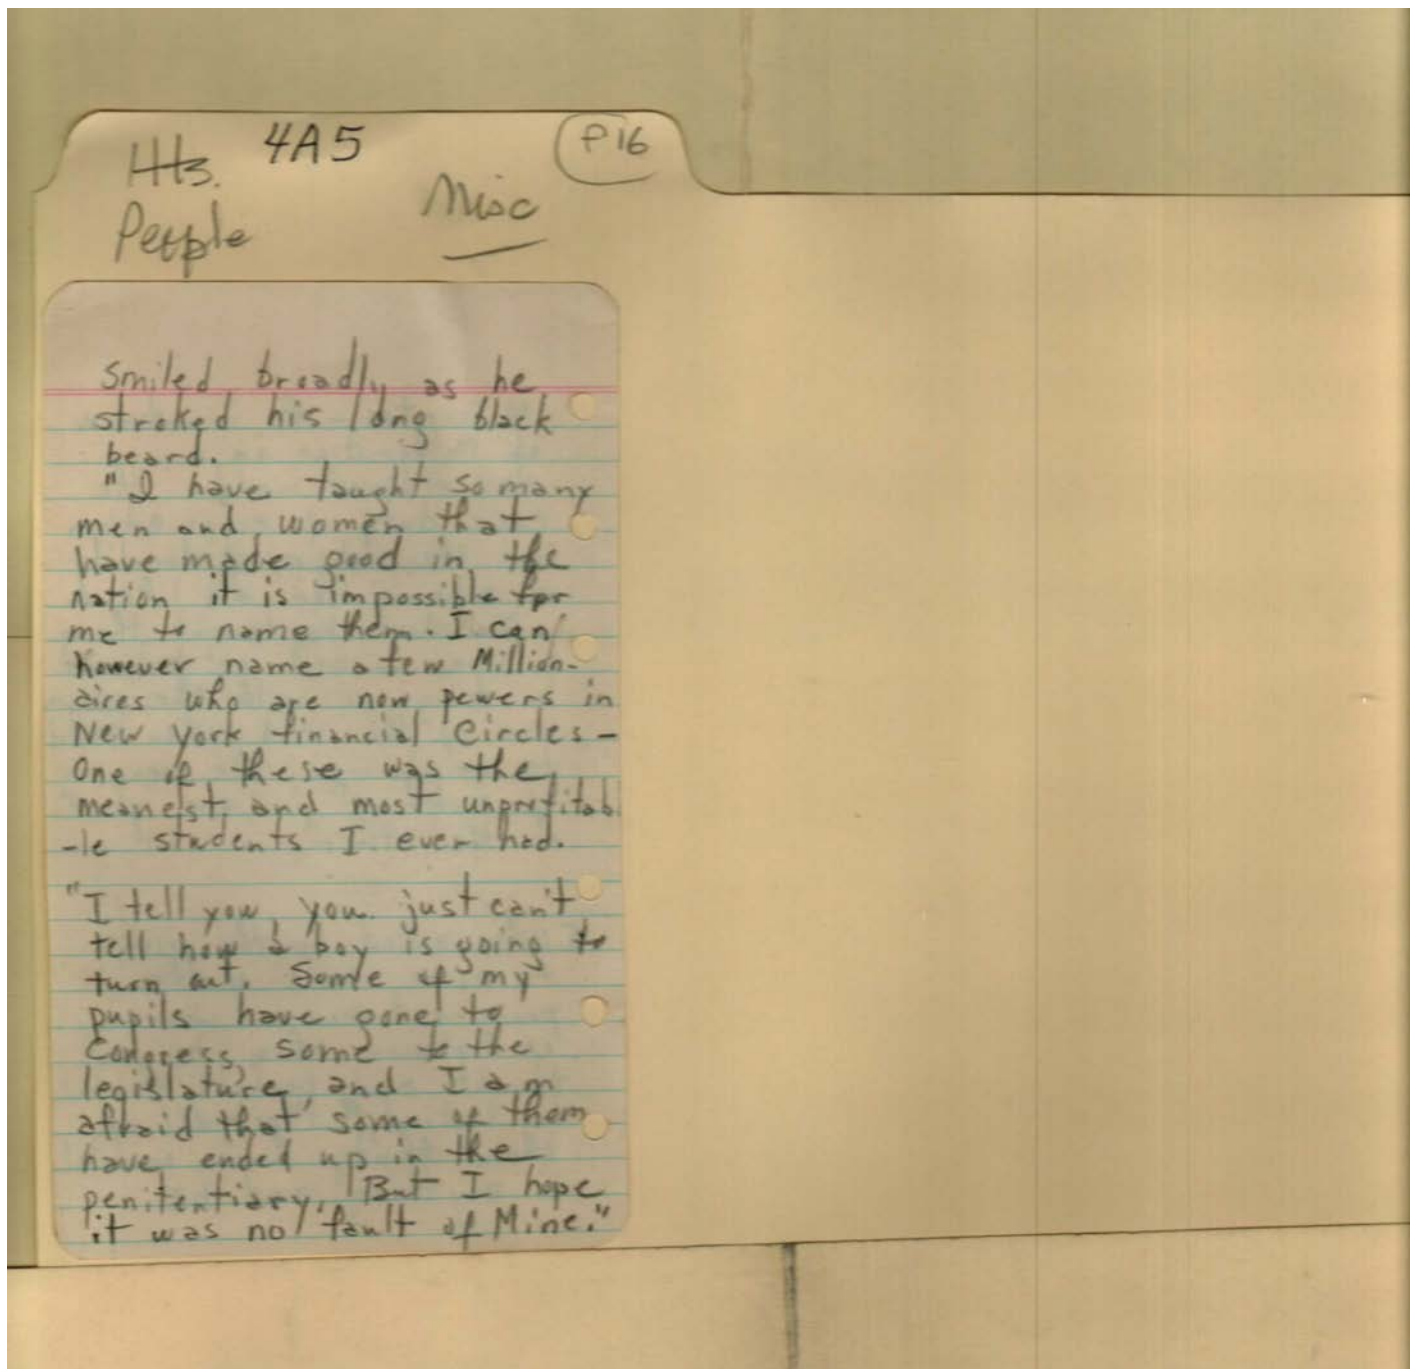 4A5
P16
Hts.
People
Misc
smiled broadly as he
stroked his long black
beard.
"I have taught so many
men and women that
have made good in the
nation it is impossible for
me to name them. I can
however name a few Million-
aires who are now powers in
New York financial Circles-
One of these was the
meanest and most unprofitab
-le students I ever had.
"I tell you, you just can't
tell how a boy is going to
turn out. Some of my
pupils have gone to
Congress some to the
legislature, and I am
afraid that some of them
have ended up in the
penitentiary. But I hope
it was no fault of Mine."